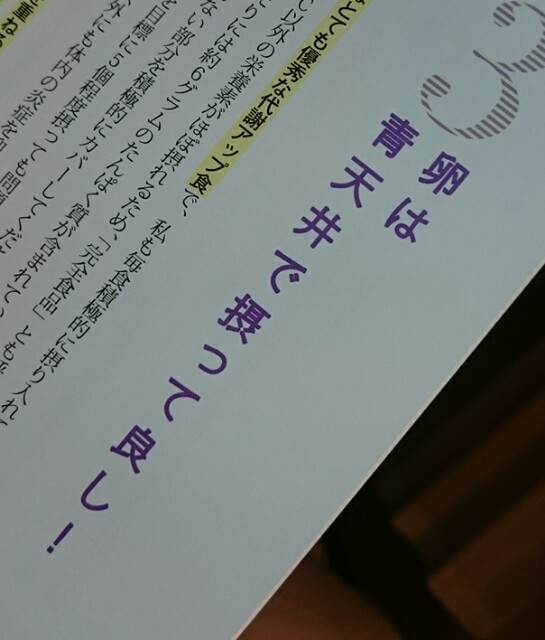 3
卵は
青天井で摂って良し!
とても優秀な代謝アップ食で、私も毎食積極的に摂り入れて
し以外の栄養素がほぼ摂れるため、「完全食品」とも
りには約6グラムのたんぱく質が含まれてい
ない部分を積極的にカバーしてくだ
を目標に5個程度摂っても問題
外にも体内の炎症を
重ねる